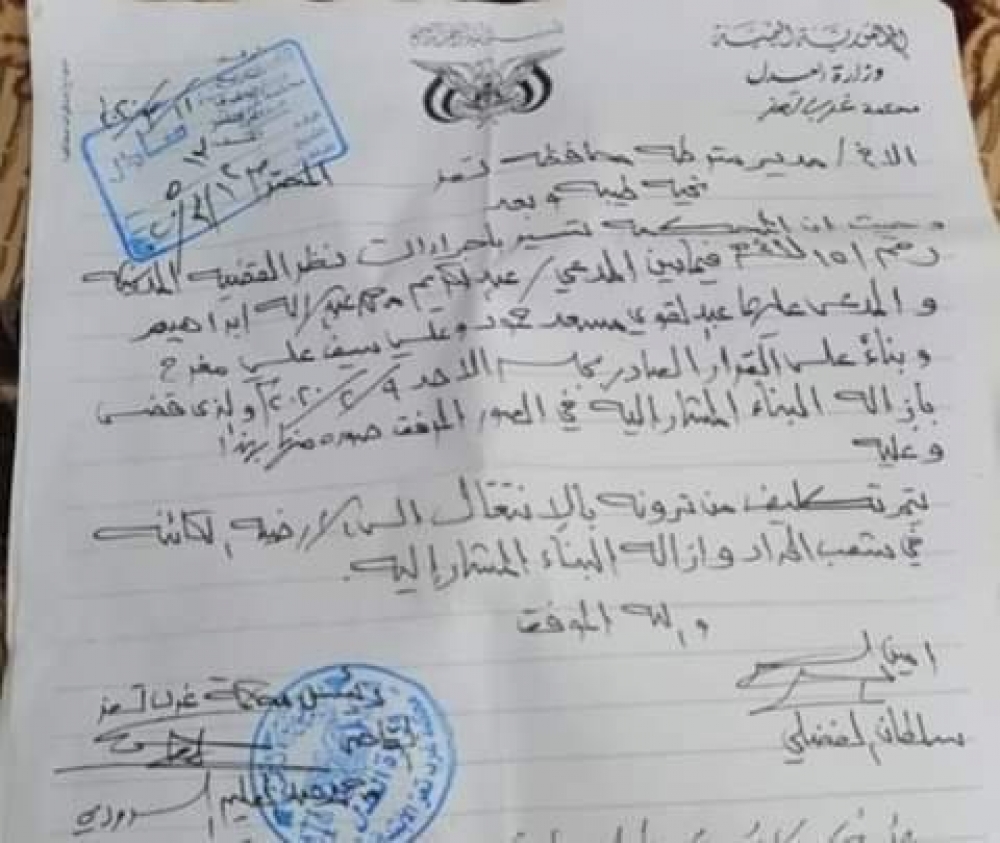 الجمهورية اليمنية
وزارة العدل
محكمة غرب تعز
الاخ / مدير شرطه محافظه تعز المحترم
تحيه طيبه وبعد
وحيث ان المحكمه تسير باجراءات نظر القضيه المدنيه
رقم فيما بين المدعي / عبدالكريم محمد عبدالله ابراهيم
والمدعى عليهما عبدالقوي مسعد حمود وعلي سيف علي مفرح
وبناءً على القرار الصادر الاحد ٩/٢/٢٠٢٠م والذي قضى
بازاله البناء المشار اليه في الصور المرفق صوره منها بهذا
وعليه
يتم تكليف من ترونه بالانتقال الى الارضيه الكائنه
في شعب المراد وازاله البناء المشار إليه.
والله الموفق
امين السر
سلطان الفضلي
رئيس محكمة غرب تعز
القاضي
السروري